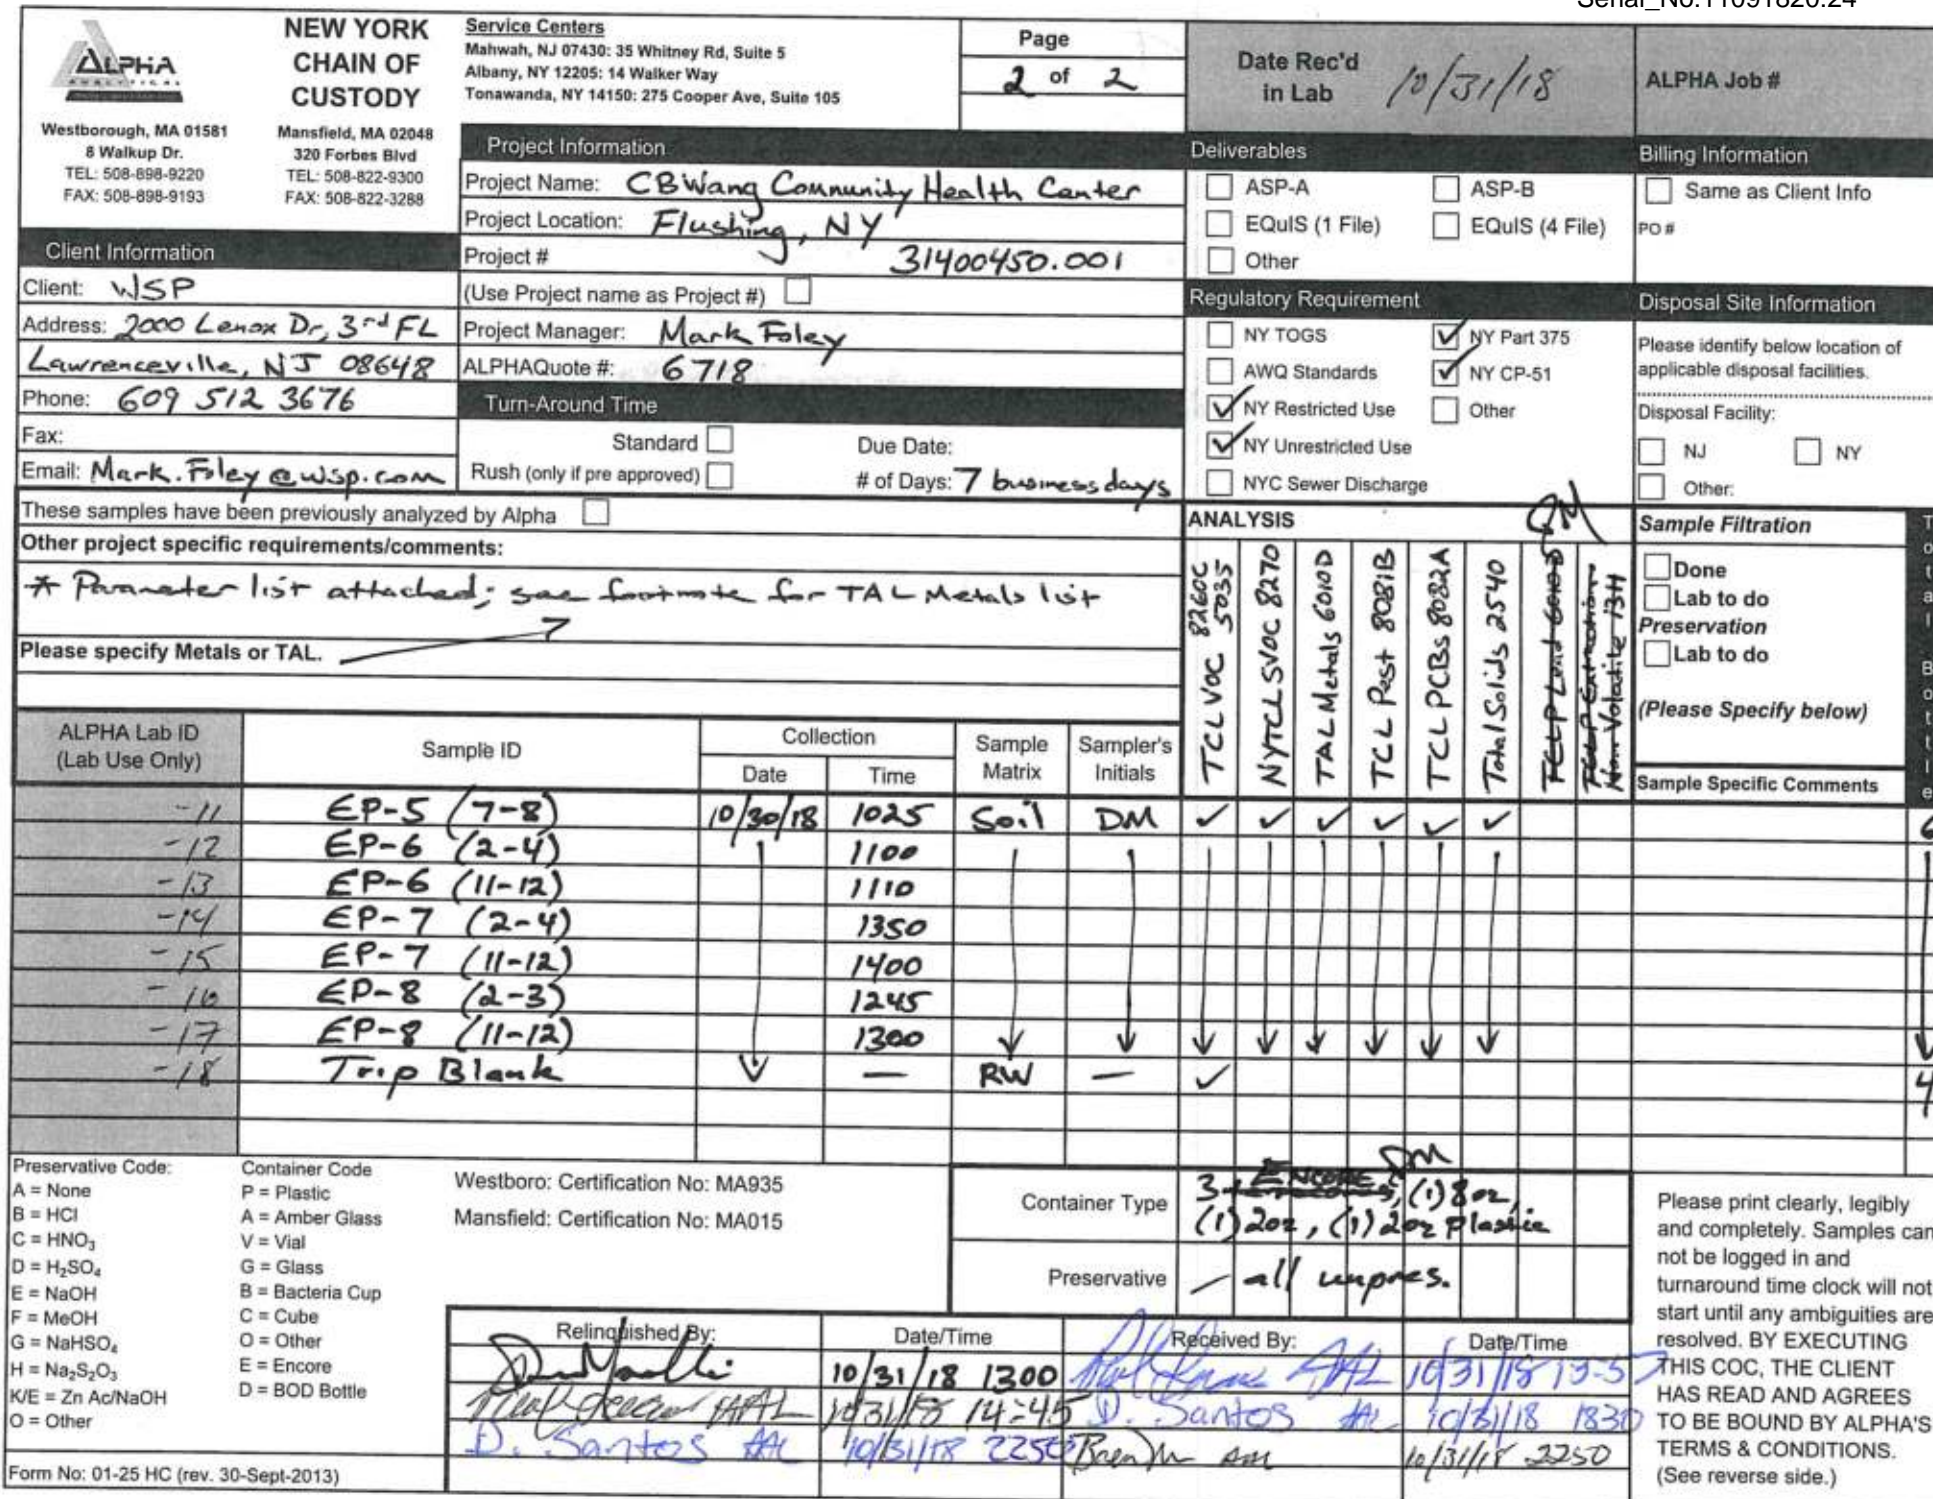 Serial_No:11091820:24
ALPHA
ANALYTICAL
Westborough, MA 01581
8 Walkup Dr.
TEL: 508-898-9220
FAX: 508-898-9193
NEW YORK
CHAIN OF
CUSTODY
Mansfield, MA 02048
320 Forbes Blvd
TEL: 508-822-9300
FAX: 508-822-3288
Service Centers
Mahwah, NJ 07430: 35 Whitney Rd, Suite 5
Albany, NY 12205: 14 Walker Way
Tonawanda, NY 14150: 275 Cooper Ave, Suite 105
Page
2 of 2
Date Rec'd
in Lab 10/31/18
ALPHA Job #
Project Information
Project Name: CBWang Community Health Center
Project Location: Flushing, NY
Project # 31400450.001
(Use Project name as Project #)
Project Manager: Mark Foley
ALPHAQuote #: 6718
Turn-Around Time
Standard Due Date:
Rush (only if pre approved) # of Days: 7 business days
Client Information
Client: WSP
Address: 2000 Lenox Dr, 3rd FL
Lawrenceville, NJ 08648
Phone: 609 512 3676
Fax:
Email: Mark.Foley@wsp.com
Deliverables
ASP-A ASP-B
EQuIS (1 File) EQuIS (4 File)
Other
Regulatory Requirement
NY TOGS ✓ NY Part 375
AWQ Standards ✓ NY CP-51
✓ NY Restricted Use Other
✓ NY Unrestricted Use
NYC Sewer Discharge
Billing Information
Same as Client Info
PO #
Disposal Site Information
Please identify below location of
applicable disposal facilities.
Disposal Facility:
NJ NY
Other:
These samples have been previously analyzed by Alpha
Other project specific requirements/comments:
* Parameter list attached; see footnote for TAL Metals list
Please specify Metals or TAL.
ANALYSIS
TCL VOC 8260C 5035
NYTCL SVOC 8270
TAL Metals 6010D
TCL Pest 8081B
TCL PCBs 8082A
Total Solids 2540
TCLP Lead 6010D
TCLP Extraction
Non-Volatile 1311
DM
Sample Filtration
Done
Lab to do
Preservation
Lab to do
(Please Specify below)
Sample Specific Comments
Total Bottle
ALPHA Lab ID
(Lab Use Only)
Sample ID
Collection
Date Time
Sample
Matrix
Sampler's
Initials
-11 EP-5 (7-8) 10/30/18 1025 Soil DM ✓ ✓ ✓ ✓ ✓ ✓ 6
-12 EP-6 (2-4) 1100
-13 EP-6 (11-12) 1110
-14 EP-7 (2-4) 1350
-15 EP-7 (11-12) 1400
-16 EP-8 (2-3) 1245
-17 EP-8 (11-12) 1300
-18 Trip Blank — RW — ✓ 4
Preservative Code:
A = None
B = HCl
C = HNO3
D = H2SO4
E = NaOH
F = MeOH
G = NaHSO4
H = Na2S2O3
K/E = Zn Ac/NaOH
O = Other
Container Code
P = Plastic
A = Amber Glass
V = Vial
G = Glass
B = Bacteria Cup
C = Cube
O = Other
E = Encore
D = BOD Bottle
Westboro: Certification No: MA935
Mansfield: Certification No: MA015
Container Type 3 ENCORE DM, (1) 8 oz,
(1) 2oz, (1) 2oz plastic
Preservative - all unpres.
Please print clearly, legibly
and completely. Samples can
not be logged in and
turnaround time clock will not
start until any ambiguities are
resolved. BY EXECUTING
THIS COC, THE CLIENT
HAS READ AND AGREES
TO BE BOUND BY ALPHA'S
TERMS & CONDITIONS.
(See reverse side.)
Relinquished By: Date/Time Received By: Date/Time
10/31/18 1300 AAL 10/31/18
AAL 10/31/18 14:45 D. Santos AAL 10/31/18 1830
D. Santos AAL 10/31/18 2250 10/31/18 2250
Form No: 01-25 HC (rev. 30-Sept-2013)